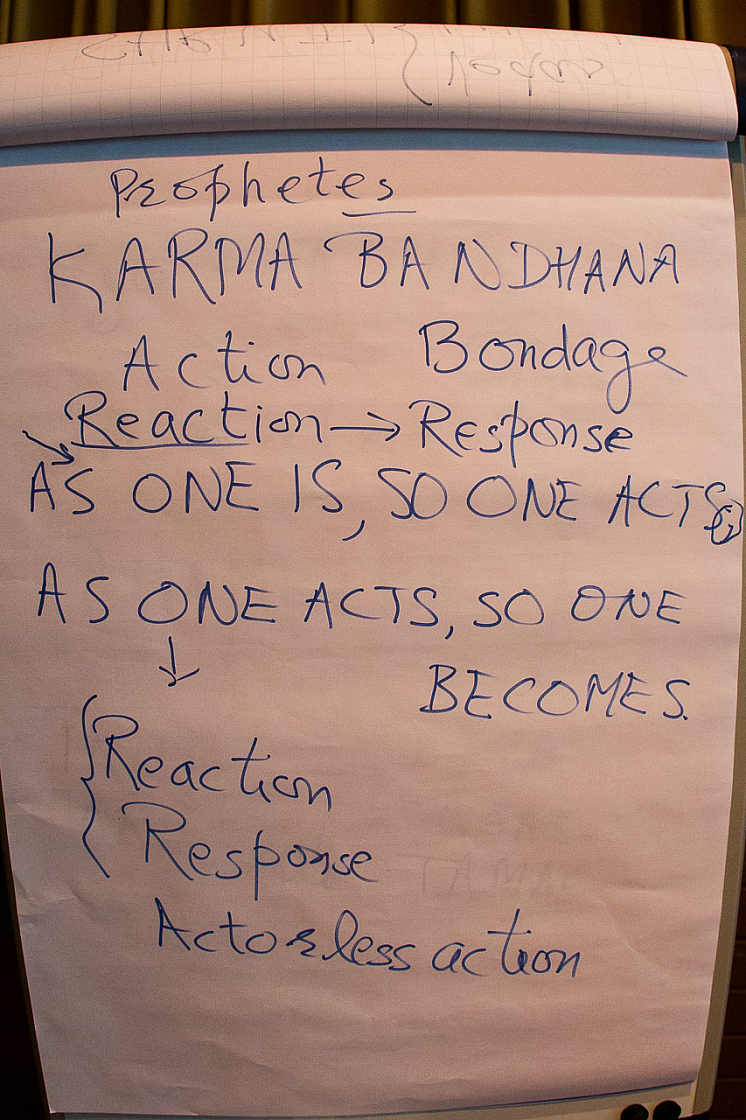 Prophetes
KARMA BANDHANA
Action Bondage
Reaction → Response
AS ONE IS, SO ONE ACTS;
AS ONE ACTS, SO ONE
BECOMES.
Reaction
Response
Actorless action